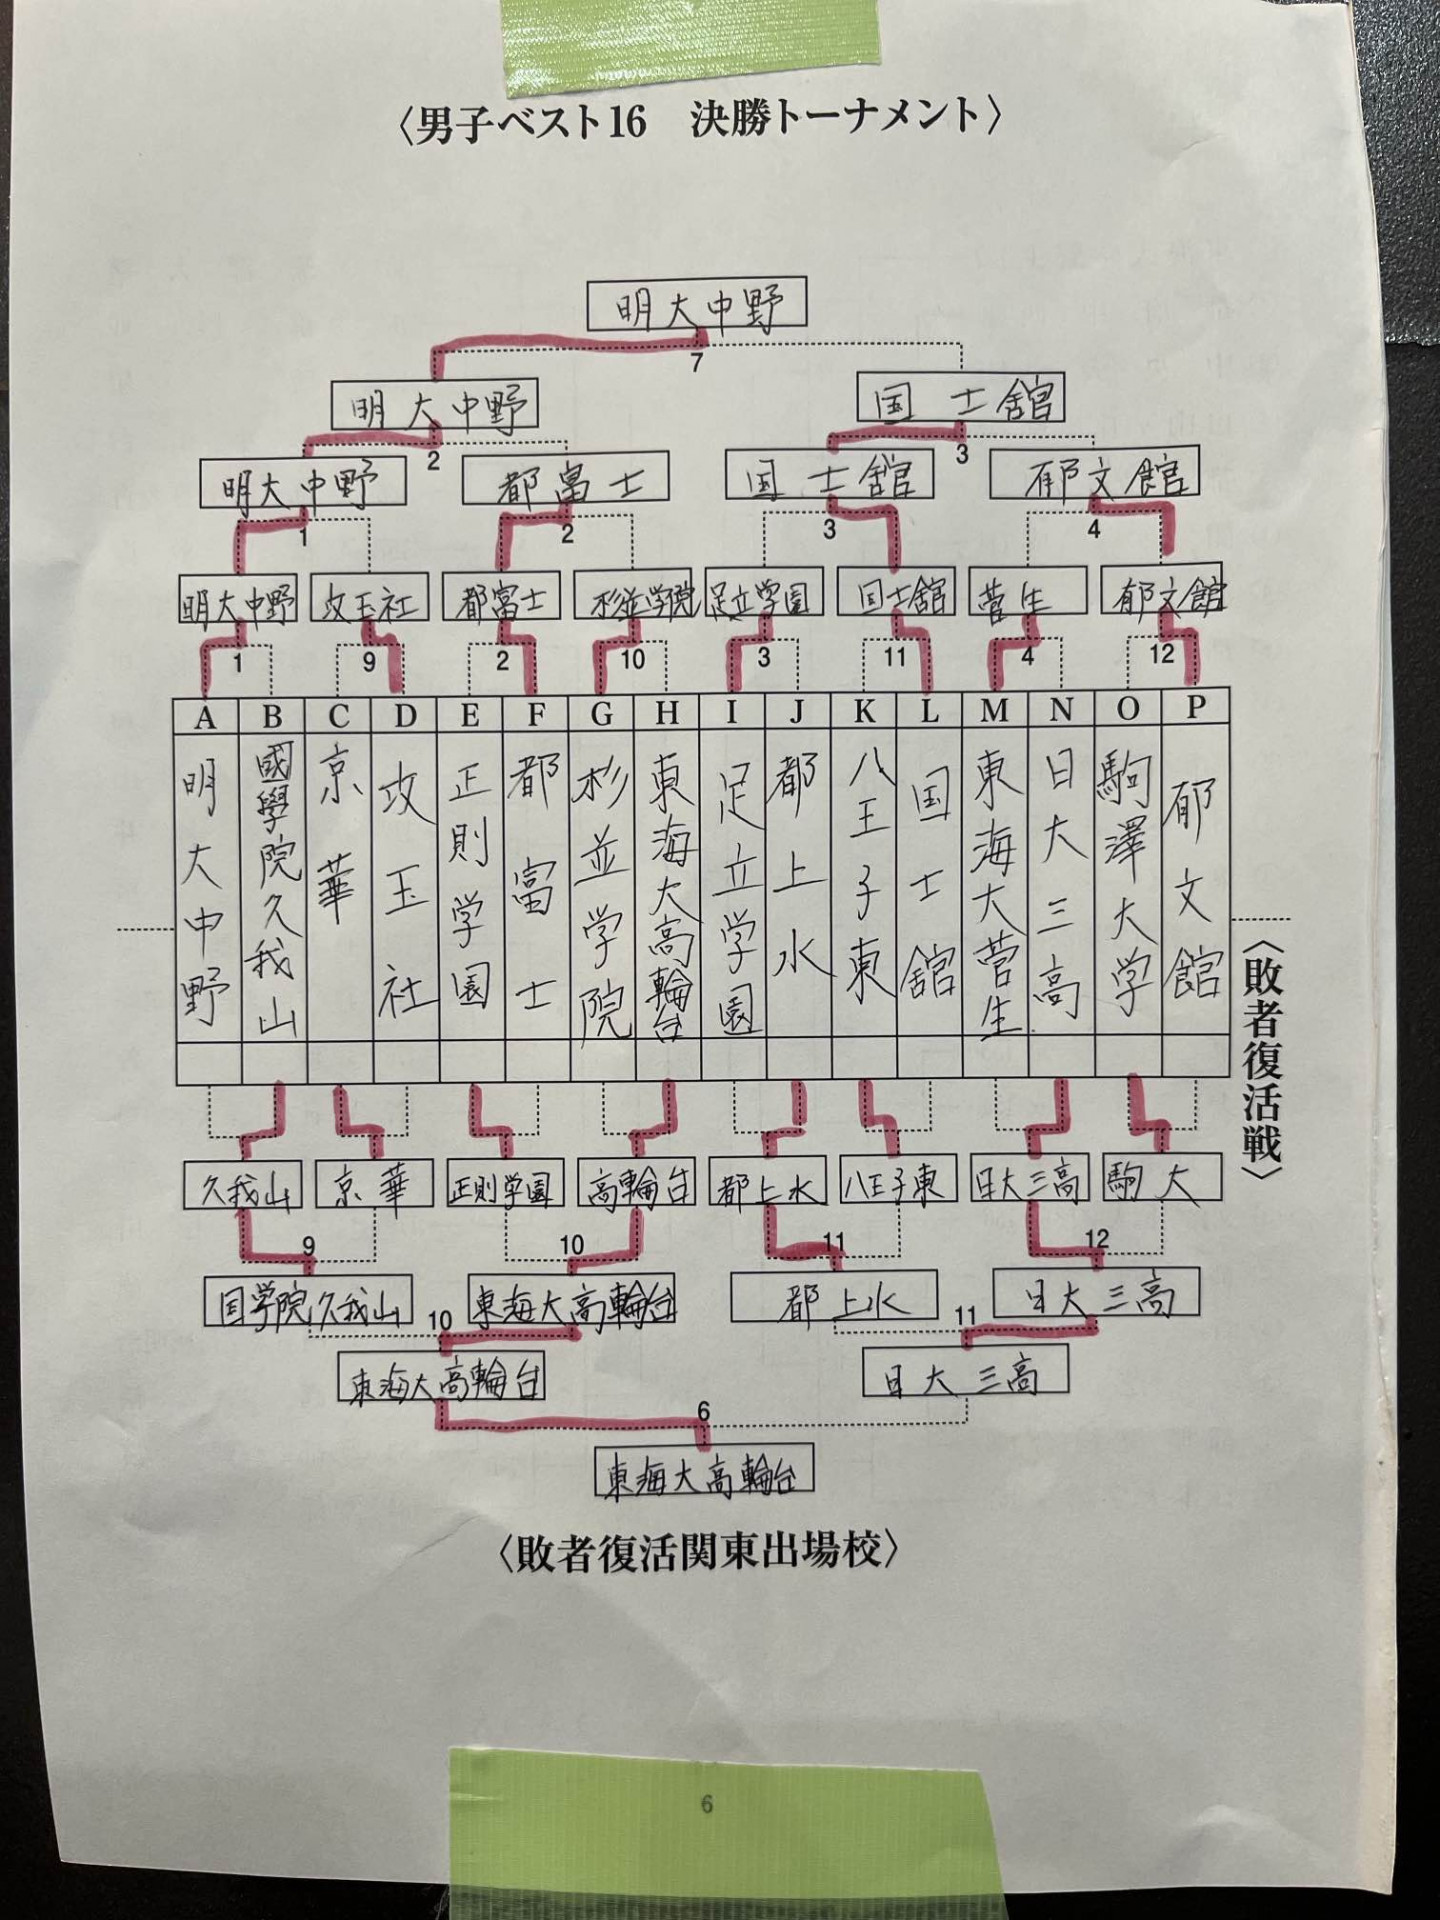 〈男子ベスト16　決勝トーナメント〉
明大中野
7
明大中野
国士舘
2
3
明大中野
都富士
国士舘
郁文館
1
2
3
4
明大中野
攻玉社
都富士
杉並学院
足立学園
国士舘
菅生
郁文館
1
9
2
10
3
11
4
12
A B C D E F G H I J K L M N O P
明大中野
國學院久我山
京華
攻玉社
正則学園
都富士
杉並学院
東海大高輪台
足立学園
都上水
八王子東
国士舘
東海大菅生
日大三高
駒澤大学
郁文館
〈敗者復活戦〉
久我山
京華
正則学園
高輪台
都上水
八王子東
日大三高
駒大
9
10
11
12
国学院久我山
東海大高輪台
都上水
日大三高
10
11
東海大高輪台
日大三高
6
東海大高輪台
〈敗者復活関東出場校〉
6